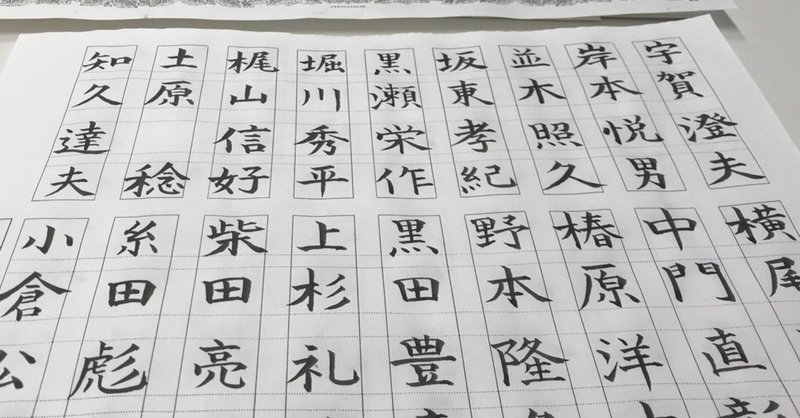 宇賀澄夫
岸本悦男
並木照久
坂東孝紀
黒瀬栄作
堀川秀平
梶山信好
土原 稔
知久達夫
横尾
中門直
椿原洋
野本隆
黒田豊
上杉礼
柴田亮
糸田彪
小倉